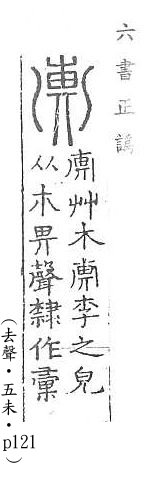 六書正譌
艸木孛之皃
从木畀聲隸作彙
(去聲．五未．p121)